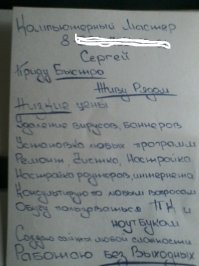 Компьютерный Мастер
8
Сергей
Приду Быстро
Живу Рядом
Низкие цены
Удаление вирусов, баннеров
Установка любых программ
Ремонт, Чистка, Настройка
Настройка роутеров, интернета
Консультирую по любым вопросам
Обучу пользоваться ПК и
ноутбуком
Создаю сайты любой сложности
Работаю Без Выходных